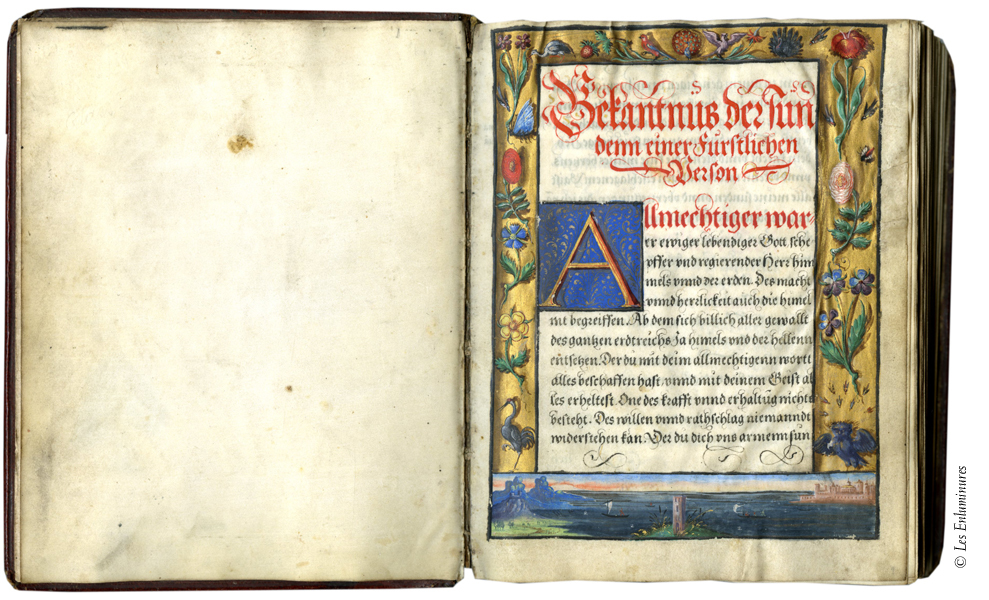 Bekantnus der sün
denn einer Fürstlichen
Person
Allmechtiger war-
er ewiger lebendiger Gott sche
pffer vnd regierender Herr him
mels vnnd der erden. Des macht
vnnd herrlickeit auch die himel
nit begreiffen. Ab dem sich billich aller gewallt
des gantzen erdtreichs Ja himels vnd der hellenn
entsetzen. Der du mit deim allmechtigenn wortt
alles beschaffen hast, vnnd mit deinem Geist al
les erheltest. One des krafft vnnd erhaltug nichts
besteht. Des willen vnnd rathschlag niemanndt
widerstehen kan. Der du dich vns armenn sün
© Les Enluminures